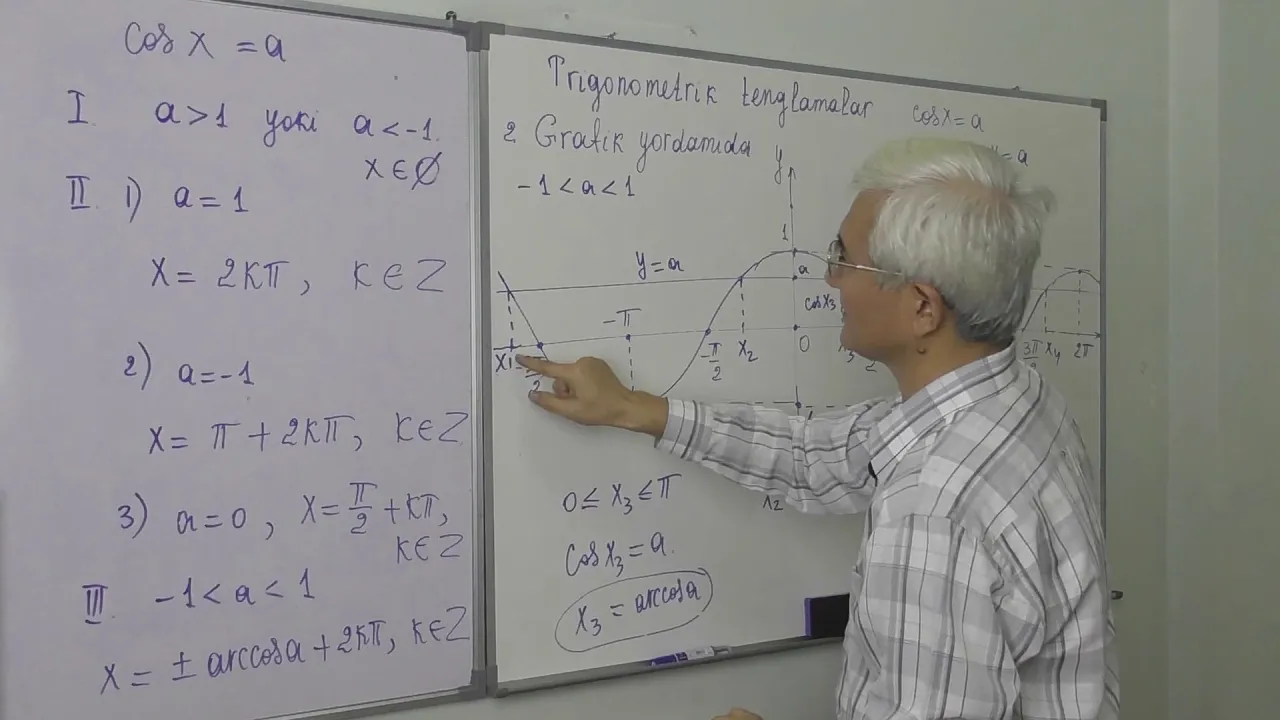 cos x = a
I. a > 1 yoki a < -1.
x ∈ ∅
II. 1) a = 1
x = 2kπ, k ∈ Z
2) a = -1
x = π + 2kπ, k ∈ Z
3) a = 0, x = π/2 + kπ,
k ∈ Z
III. -1 < a < 1
x = ± arccos a + 2kπ, k ∈ Z
Trigonometrik tenglamalar cos x = a
2 Grafik yordamida
y
= a
-1 < a < 1
1
y = a
a
cos x₃
-π
x₁
2
-π/2
x₂
0
3π/2
x₄
2π
0 ≤ x₃ ≤ π
cos x₃ = a.
x₃ = arccos a